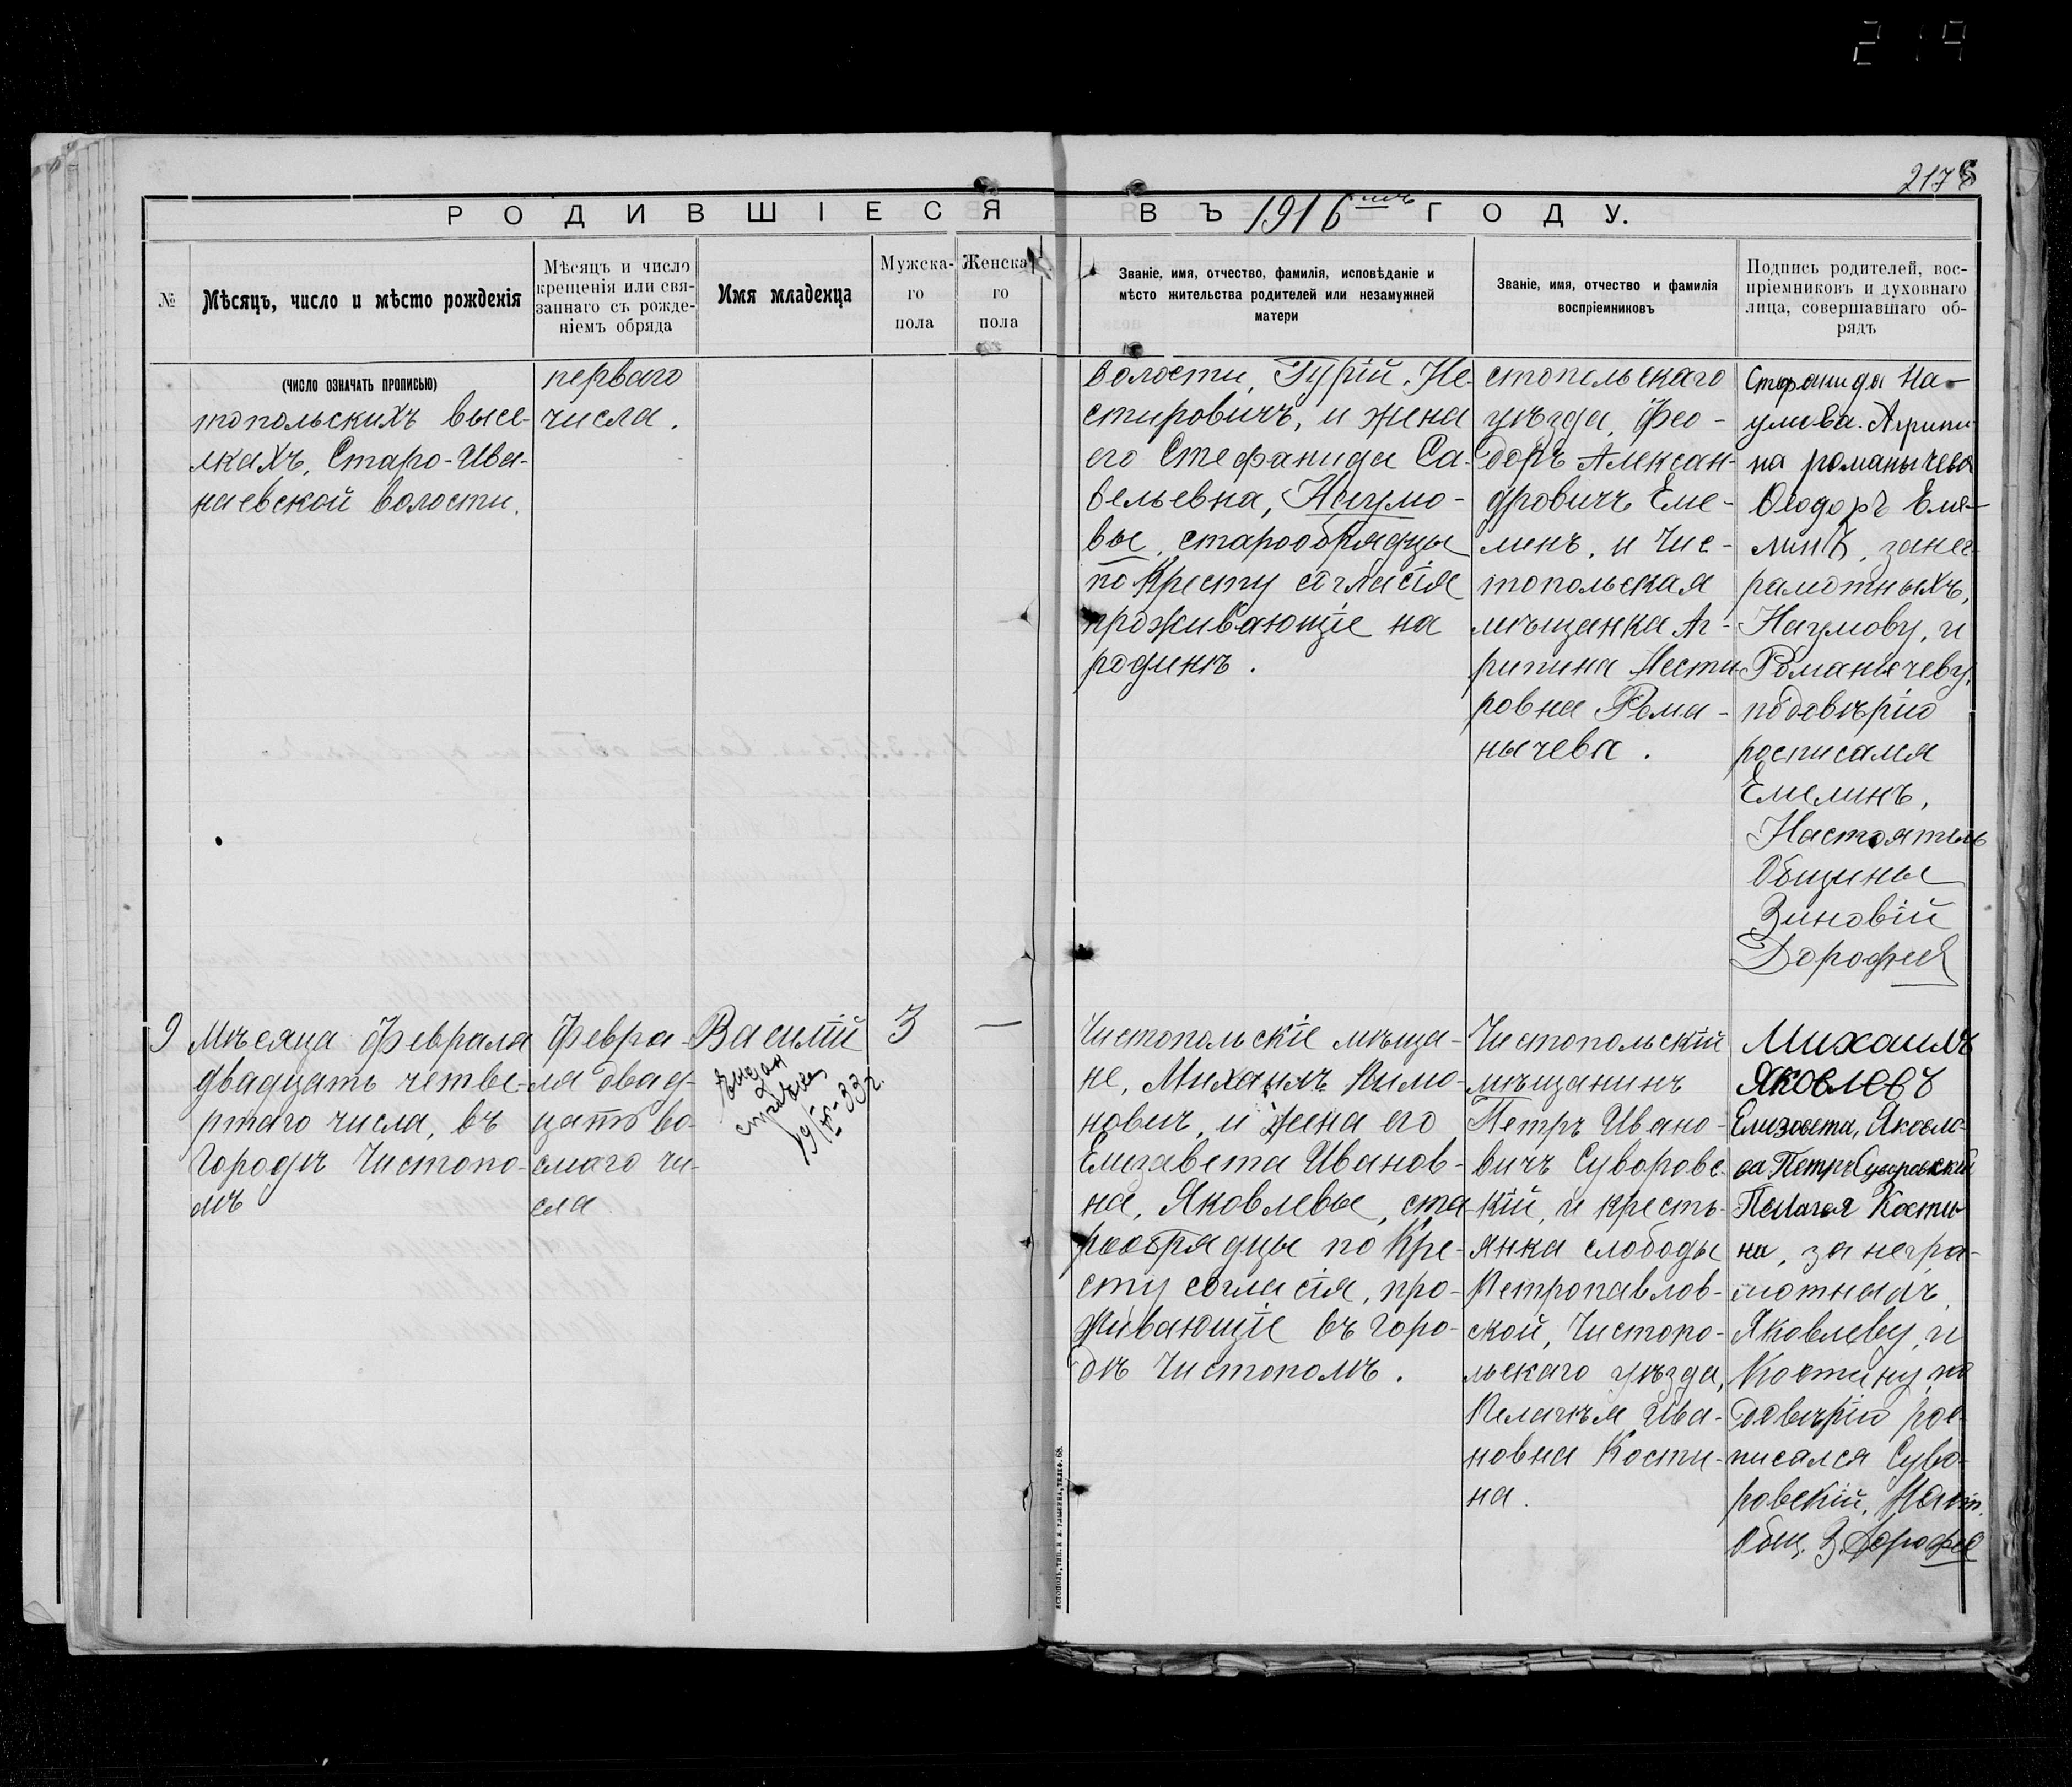 219
2178
РОДИВШІЕСЯ ВЪ 1916 мъ ГОДУ.
№
Мѣсяцъ, число и мѣсто рожденія
Мѣсяцъ и число
крещенія или свя-
заннаго съ рожде-
ніемъ обряда
Имя младенца
Мужска-
го
пола
Женска-
го
пола
Званіе, имя, отчество, фамилія, исповѣданіе и
мѣсто жительства родителей или незамужней
матери
Званіе, имя, отчество и фамилія
воспріемниковъ
Подпись родителей, вос-
пріемниковъ и духовнаго
лица, совершавшаго об-
рядъ
(ЧИСЛО ОЗНАЧАТЬ ПРОПИСЬЮ)
топольскихъ высе-
лкахъ, Старо-Ива-
наевской волости.
перваго
числа.
волости, Гурій Не-
стировичъ, и жена
его Стефанида Са-
вельевна, Наумо-
вы, старообрядцы
по Кресту согласія
проживающіе на
родинѣ.
стопольскаго
уѣзда, Фео-
доръ Алексан-
дровичъ Еме-
линъ, и Чис-
топольская
мѣщанка Аг-
рипина Нести-
ровна Рома-
нычева.
Стефанида На-
умова. Агрипи-
на романычева
Ѳеодоръ Еме-
линъ, занег-
рамотныхъ,
Наумову, и
Романычеву,
подовѣрію
росписался
Емелинъ,
Настоятель
Общины
Зиновій
Дорофеев
9
Мѣсяца Февраля
двадцать четве-
ртаго числа, въ
Городѣ Чистопо-
лѣ
Февра-
ля двад-
цать во-
смаго чи-
сла
Василій
выдан
справка
19/IV-33 г.
3
—
Чистопольскіе мѣща-
не, Михаилъ Климо-
нович, и жена его
Елизавета Иванов-
на, Яковлевы, ста-
рообрядцы по Кре-
сту согласія, про-
живающіе въ горо-
дѣ Чистополѣ.
Чистопольскій
мѣщанинъ
Петръ Ивано-
вичъ Суворовс-
кій, и кресть-
янка слободы
Петропавлов-
ской, Чистопо-
льскаго уѣзда,
Пелагѣя Ива-
новна Кости-
на.
Михаилъ
Яковлевъ
Елизовета, Яковле-
ва Петръ Суворовскій
Пелагея Кости-
на, за негра-
мотныхъ,
Яковлеву, и
Костину, по
довѣрію рос-
писался Суво-
ровскій, Наст.
Общ. З. Дорофее
ИСТОПОЛЬ, ТИП. И. И. ТЕЛЕФ. 68.